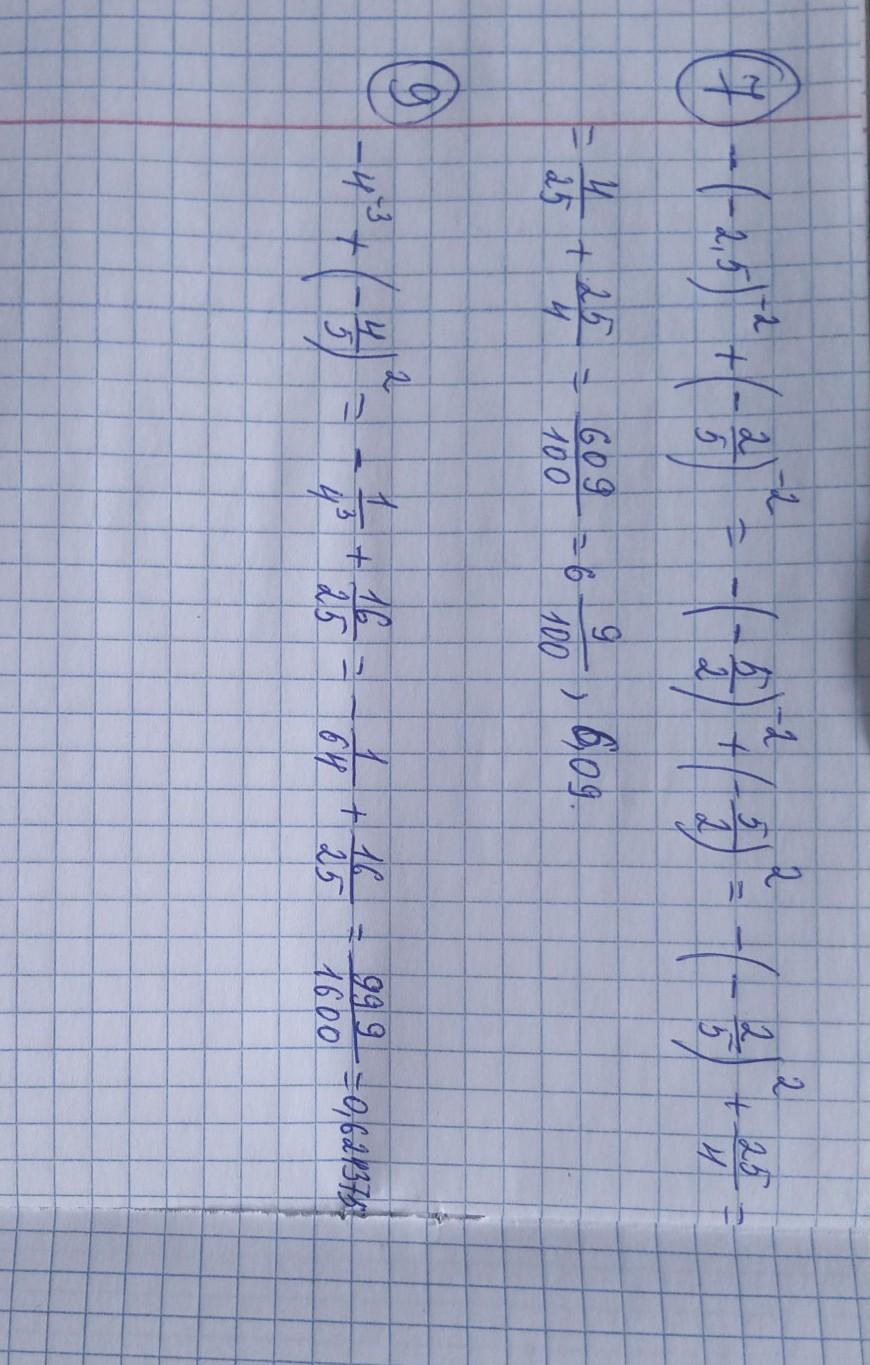 ⑦ -(-2,5)^{-2} + (-\frac{2}{5})^{-2} = -(-\frac{5}{2})^{-2} + (-\frac{5}{2})^{2} = -(-\frac{2}{5})^{2} + \frac{25}{4} =
= \frac{4}{25} + \frac{25}{4} = \frac{609}{100} = 6\frac{9}{100}, 6,09.
⑨ -4^{-3} + (-\frac{4}{5})^{2} = -\frac{1}{4^{3}} + \frac{16}{25} = -\frac{1}{64} + \frac{16}{25} = \frac{999}{1600} = 0,624375